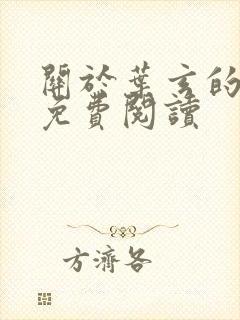 關於葉玄的
免費閱讀
方濟各